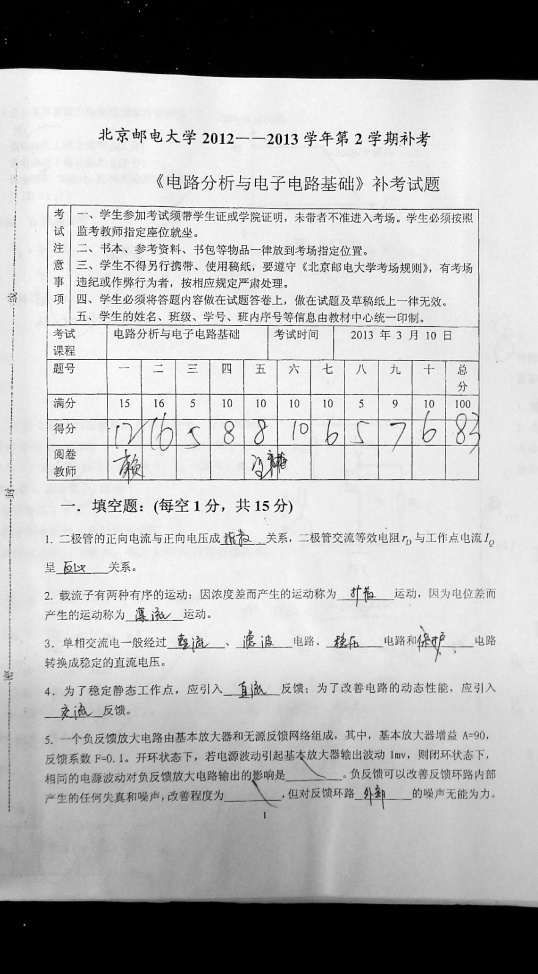 北京邮电大学 2012——2013 学年第 2 学期补考
《电路分析与电子电路基础》补考试题
考试注意事项
一、学生参加考试须带学生证或学院证明，未带者不准进入考场。学生必须按照
监考教师指定座位就坐。
二、书本、参考资料、书包等物品一律放到考场指定位置。
三、学生不得另行携带、使用稿纸，要遵守《北京邮电大学考场规则》，有考场
违纪或作弊行为者，按相应规定严肃处理。
四、学生必须将答题内容做在试题答卷上，做在试题及草稿纸上一律无效。
五、学生的姓名、班级、学号、班内序号等信息由教材中心统一印制。
考试课程 电路分析与电子电路基础 考试时间 2013 年 3 月 10 日
题号 一 二 三 四 五 六 七 八 九 十 总分
满分 15 16 5 10 10 10 10 5 9 10 100
得分 12 16 5 8 8 10 6 5 7 6 83
阅卷教师
一．填空题：(每空 1 分，共 15 分)
1. 二极管的正向电流与正向电压成 指数 关系，二极管交流等效电阻 r_D 与工作点电流 I_Q
呈 反比 关系。
2. 载流子有两种有序的运动：因浓度差而产生的运动称为 扩散 运动，因为电位差而
产生的运动称为 漂流 运动。
3．单相交流电一般经过 整流 、 滤波 电路、 稳压 电路和 保护 电路
转换成稳定的直流电压。
4．为了稳定静态工作点，应引入 直流 反馈；为了改善电路的动态性能，应引入
交流 反馈。
5．一个负反馈放大电路由基本放大器和无源反馈网络组成，其中，基本放大器增益 A=90，
反馈系数 F=0.1。开环状态下，若电源波动引起基本放大器输出波动 1mv，则闭环状态下，
相同的电源波动对负反馈放大电路输出的影响是 。负反馈可以改善反馈环路内部
产生的任何失真和噪声，改善程度为 ，但对反馈环路 外部 的噪声无能为力。
1